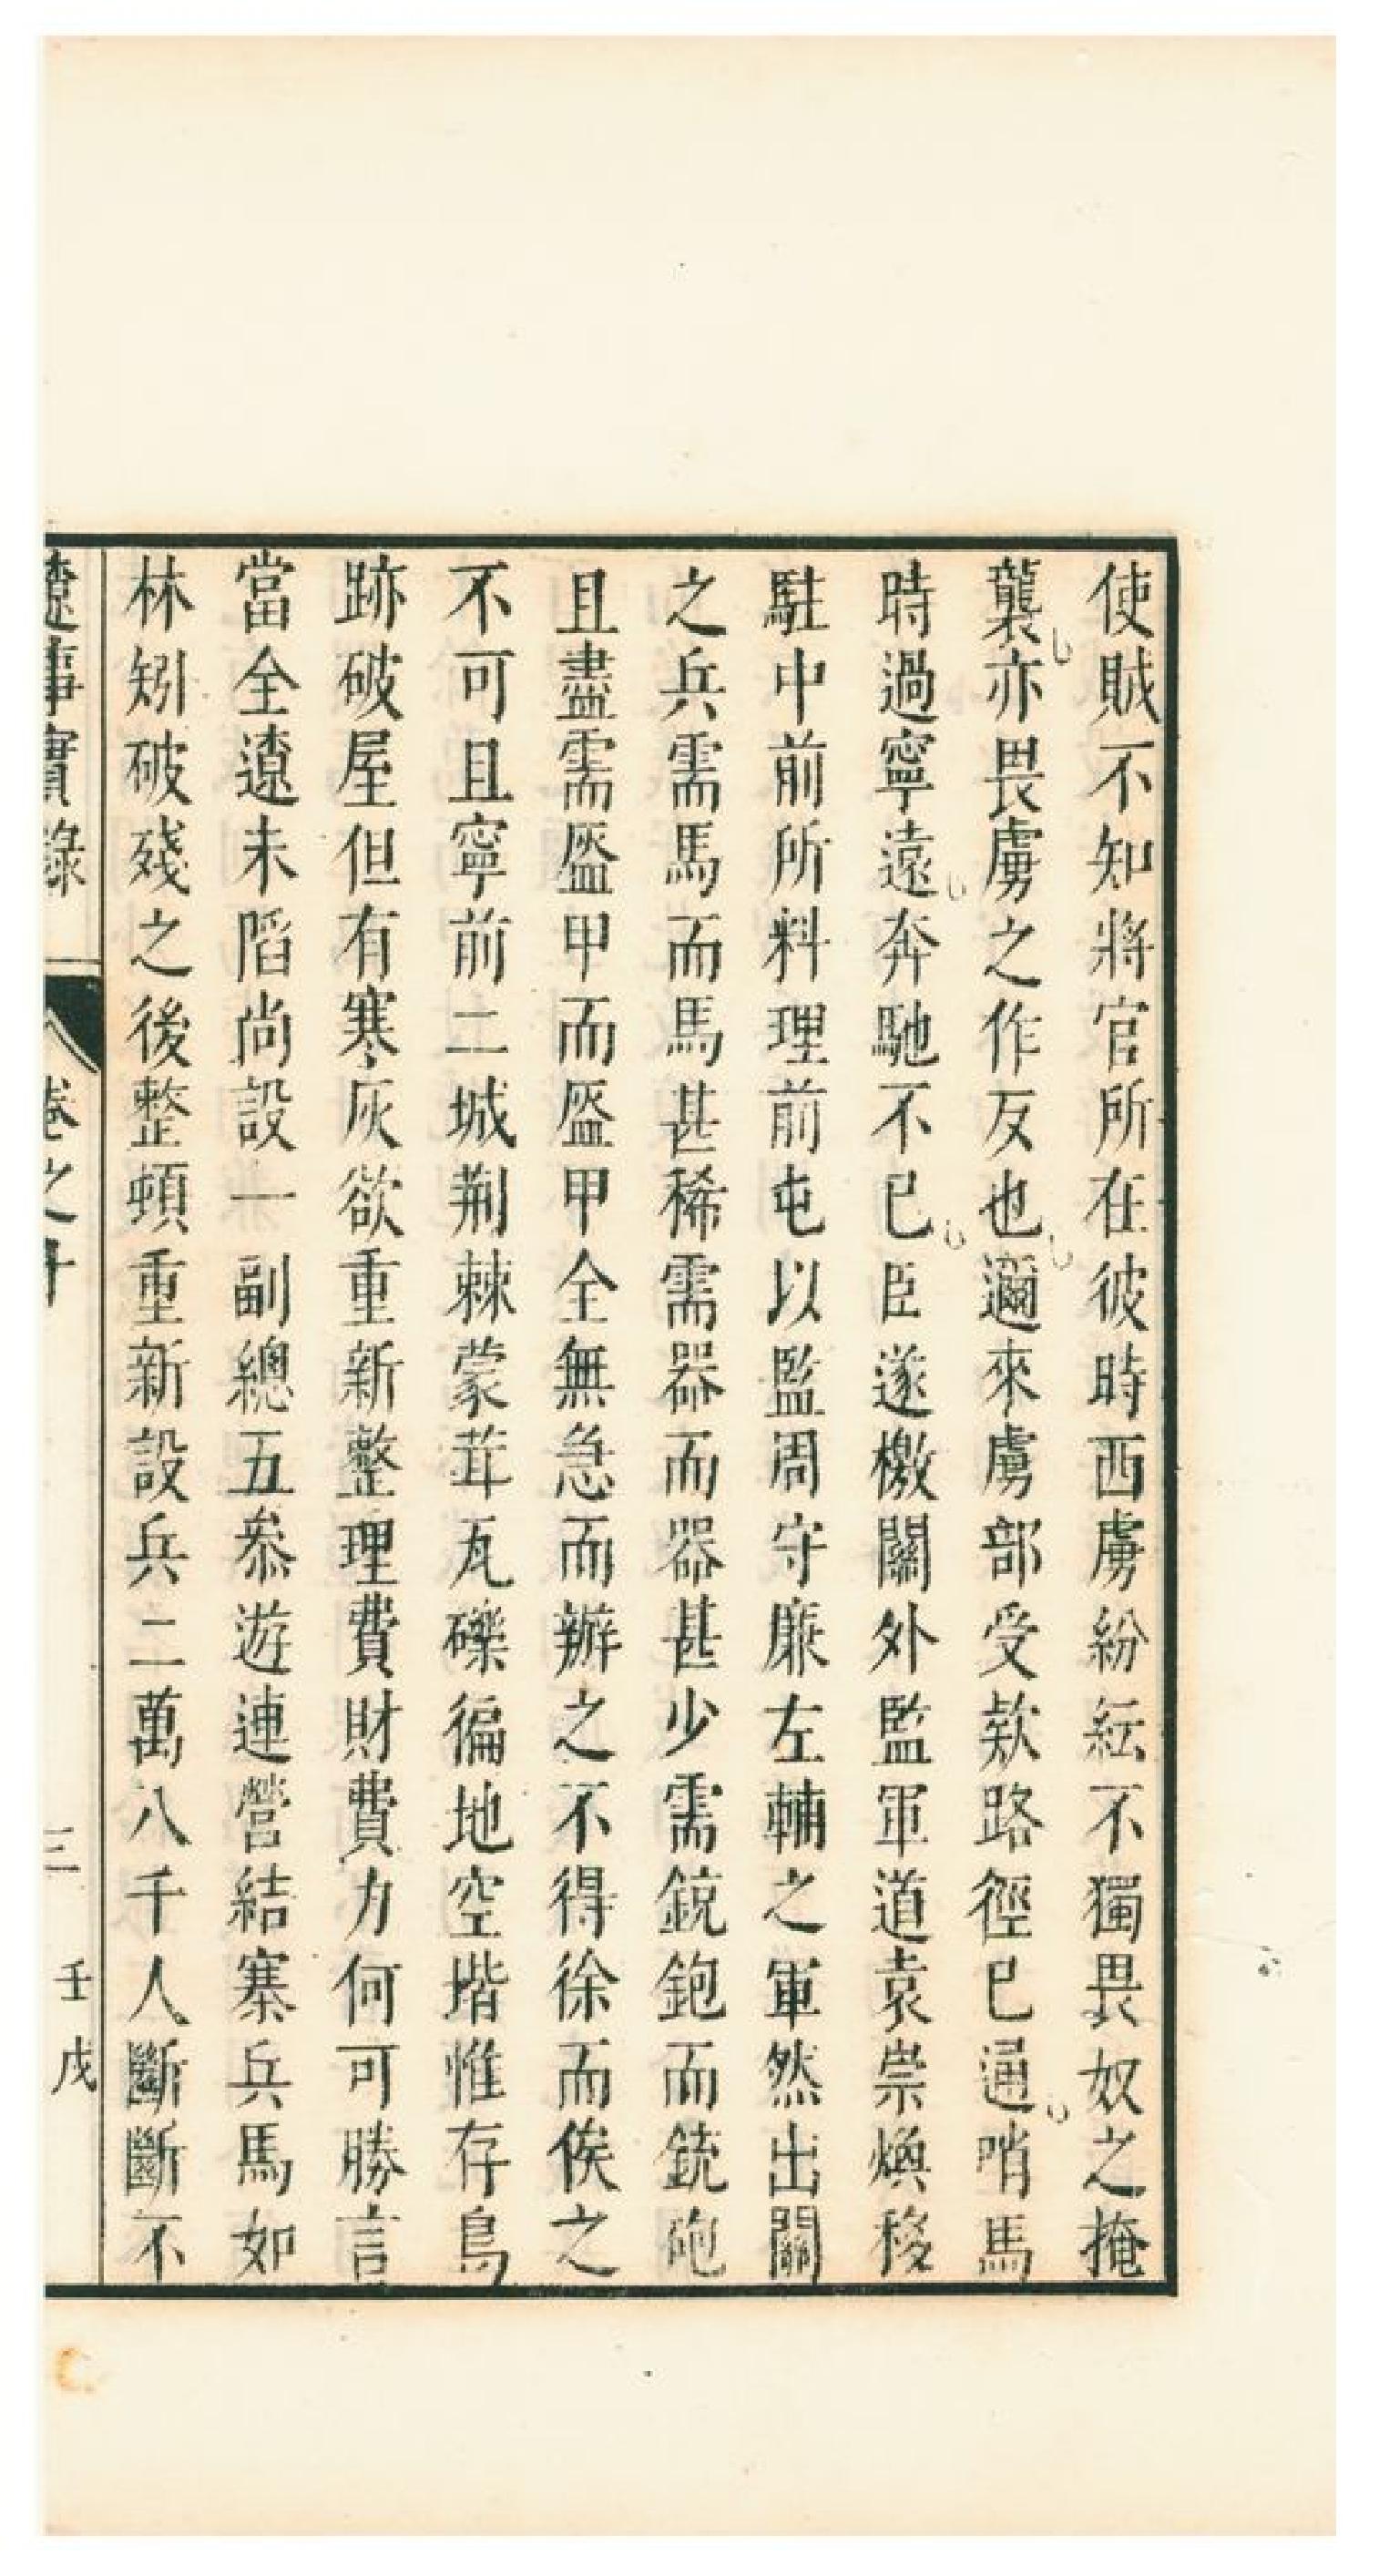 使賊不知將官所在彼時西虜紛紜不獨畏奴之掩
襲亦畏虜之作反也邇來虜部受欵路徑已通哨馬
時過寧遠奔馳不已臣遂檄關外監軍道袁崇煥移
駐中前所料理前屯以監周守廉左輔之軍然出關
之兵需馬而馬甚稀需器而器甚少需銃鉋而銃砲
且盡需盔甲而盔甲全無急而辦之不得徐而俟之
不可且寧前二城荆棘蒙茸瓦礫徧地空堦惟存鳥
跡破屋但有寒灰欲重新整理費財費力何可勝言
當全遼未陷尚設一副總五叅遊連營結寨兵馬如
林矧破殘之後整頓重新設兵二萬八千人斷斷不
遼事實錄 卷之十 三 壬戌